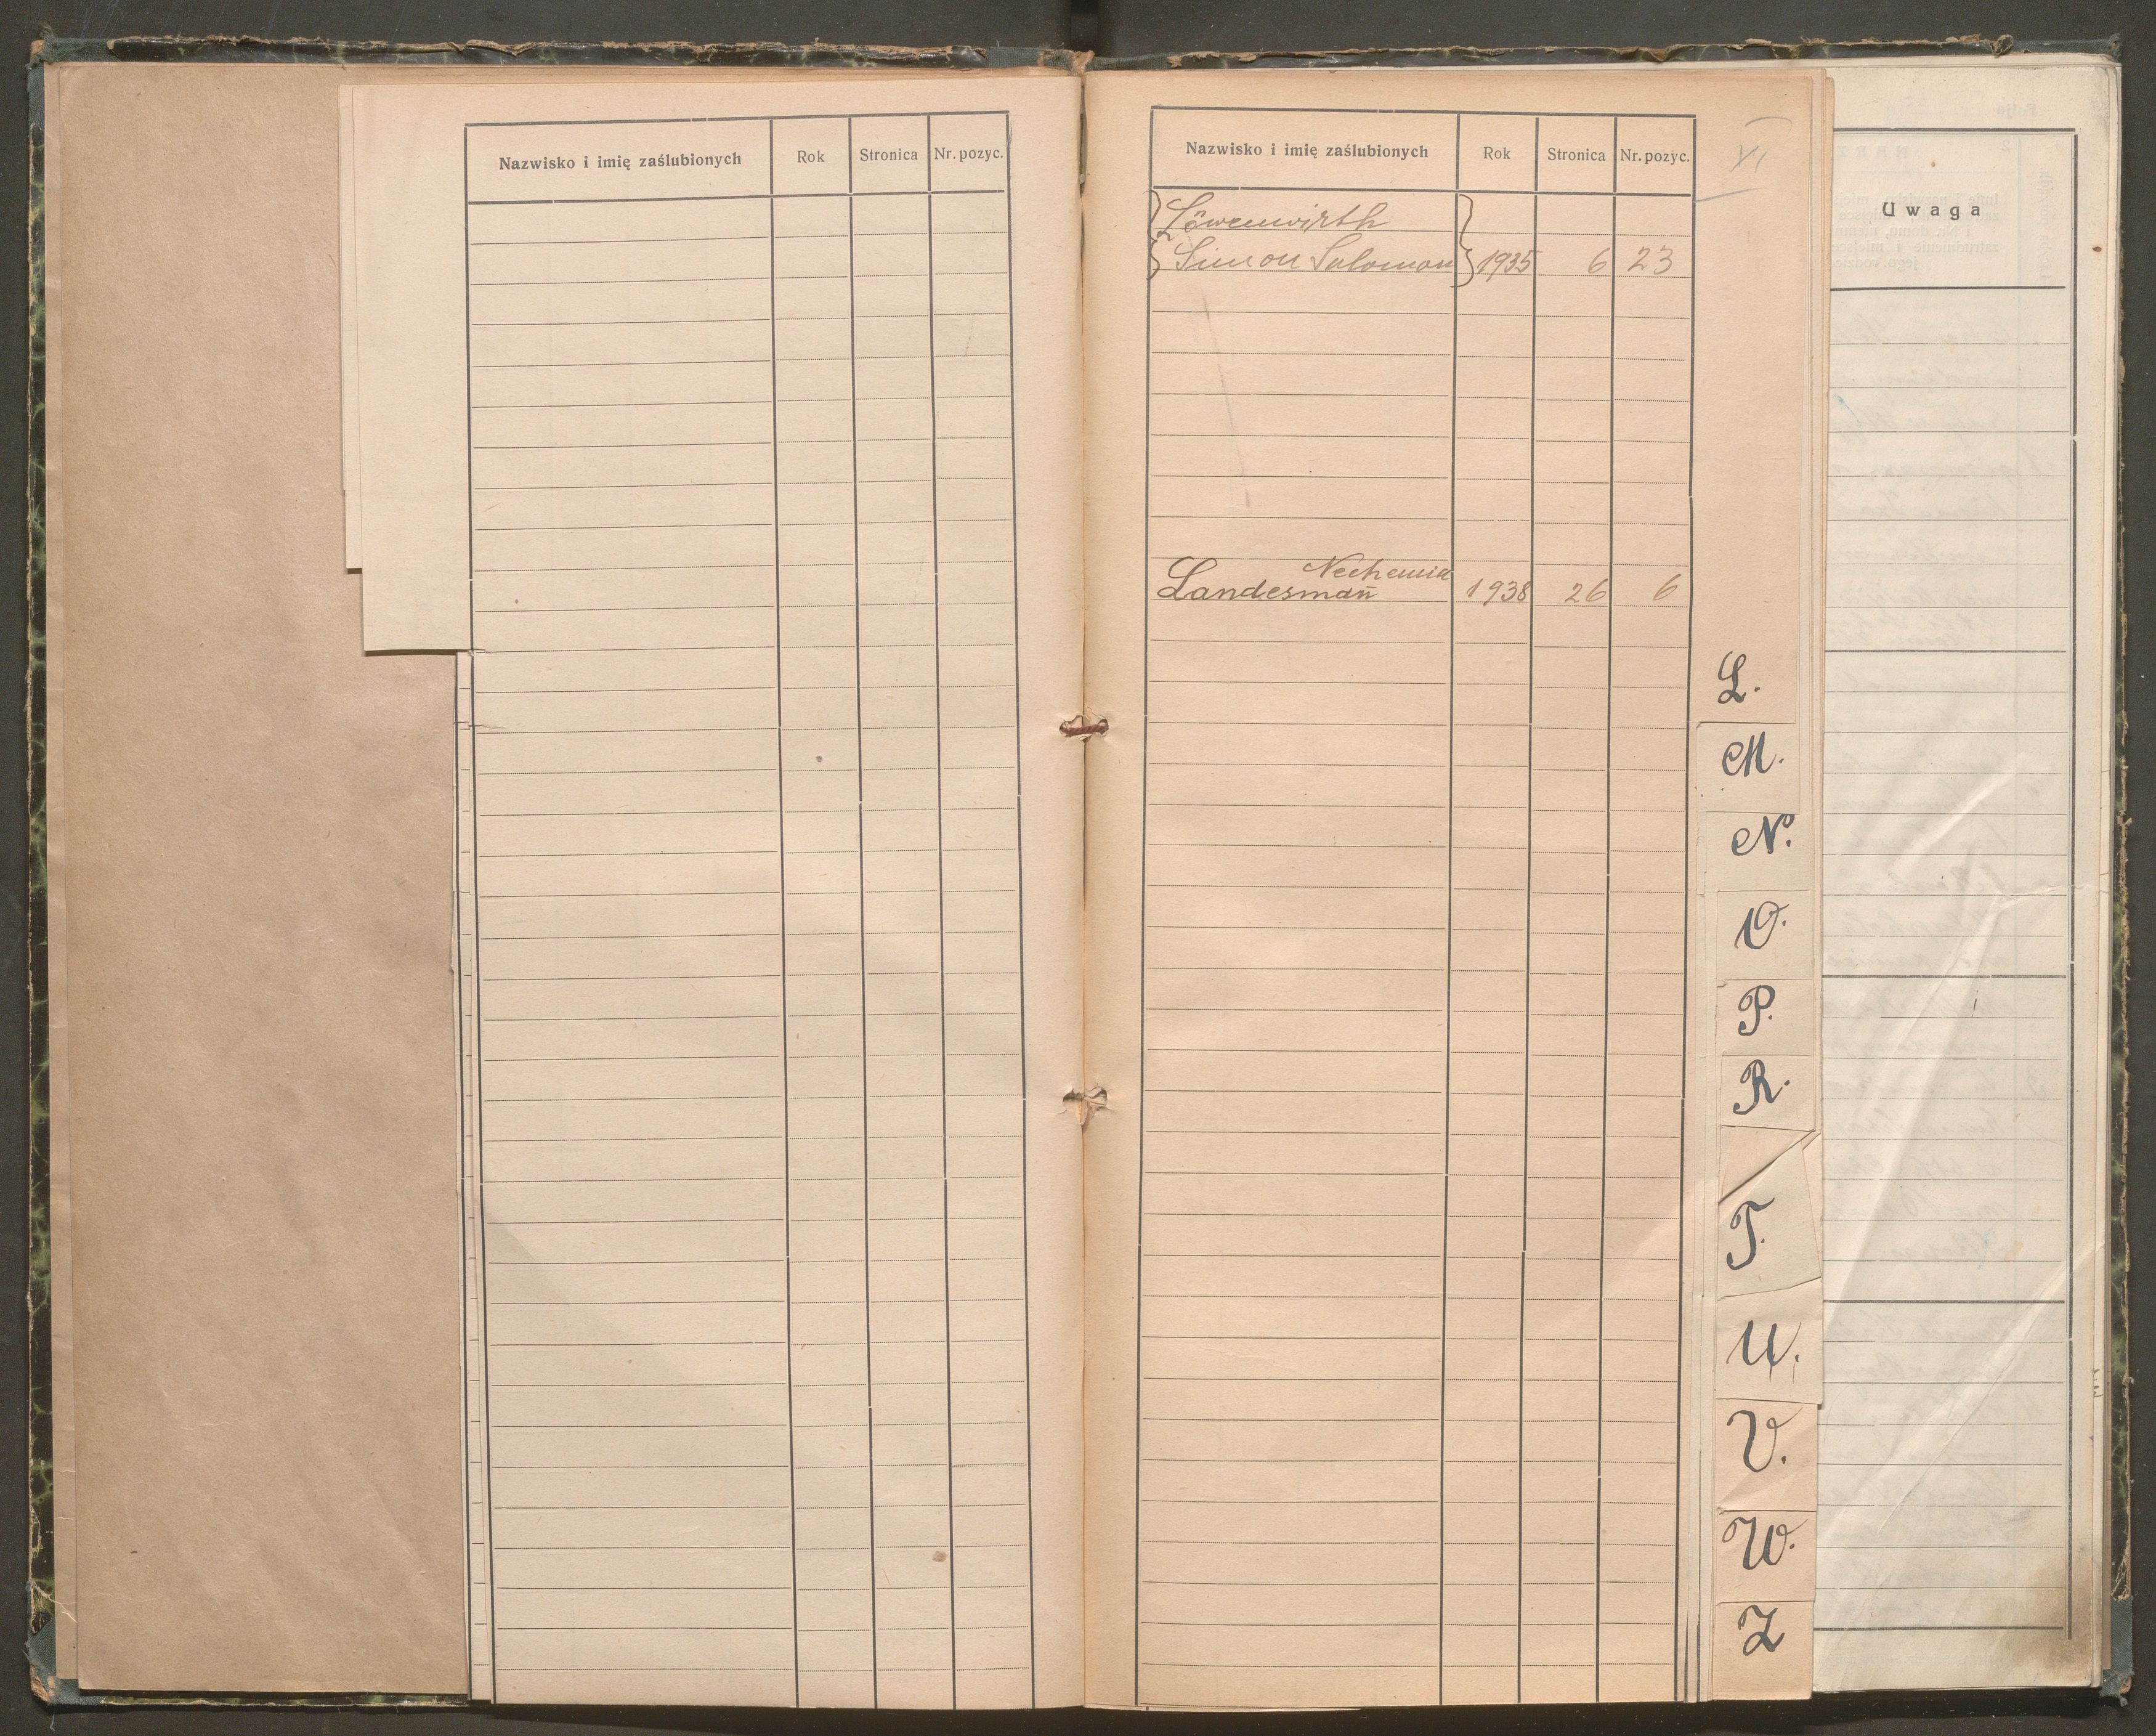 Nazwisko i imię zaślubionych Rok Stronica Nr. pozyc.
Nazwisko i imię zaślubionych Rok Stronica Nr. pozyc.
XI
Löwenwirth
Simon Salomon 1935 6 23
Nechemia
Landesman̄ 1938 26 6
L.
M.
N.
O.
P.
R.
T.
U.
V.
W.
Z
Uwaga